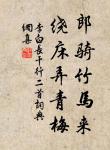 郎骑竹马来
绕床弄青梅
李白长干行二首词典
网喜